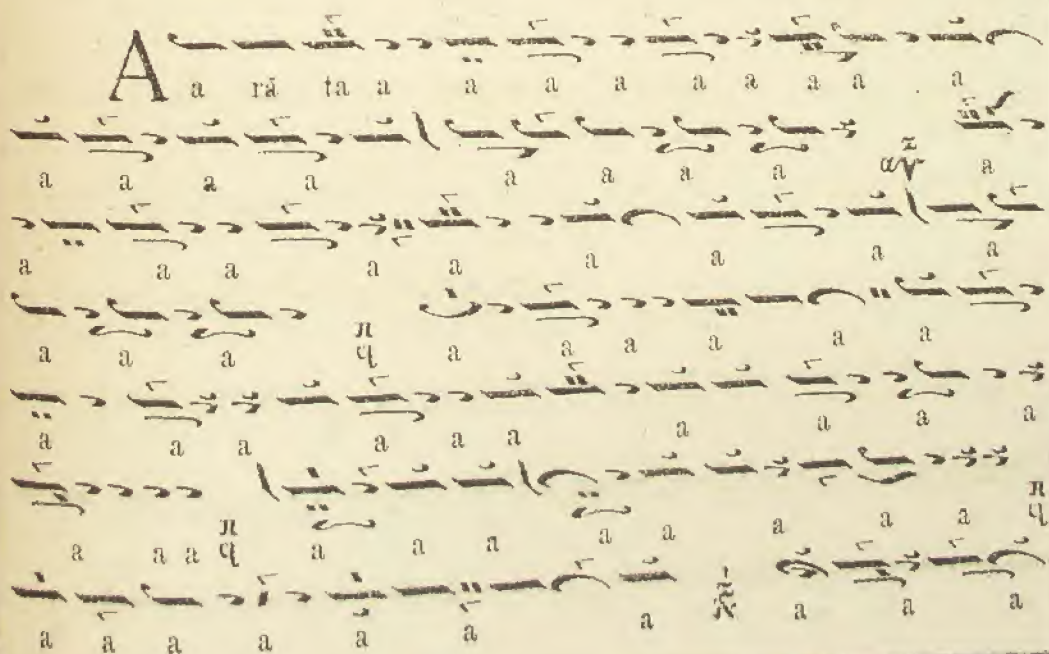 A a ră ta a a a a a a a a a
a a a a a a a a a
a a a a a a a a a
a a a π q a a a a a a
a a a a a a a a a a
a a a π q a a a a a a a a π q
a a a a a a a a a a